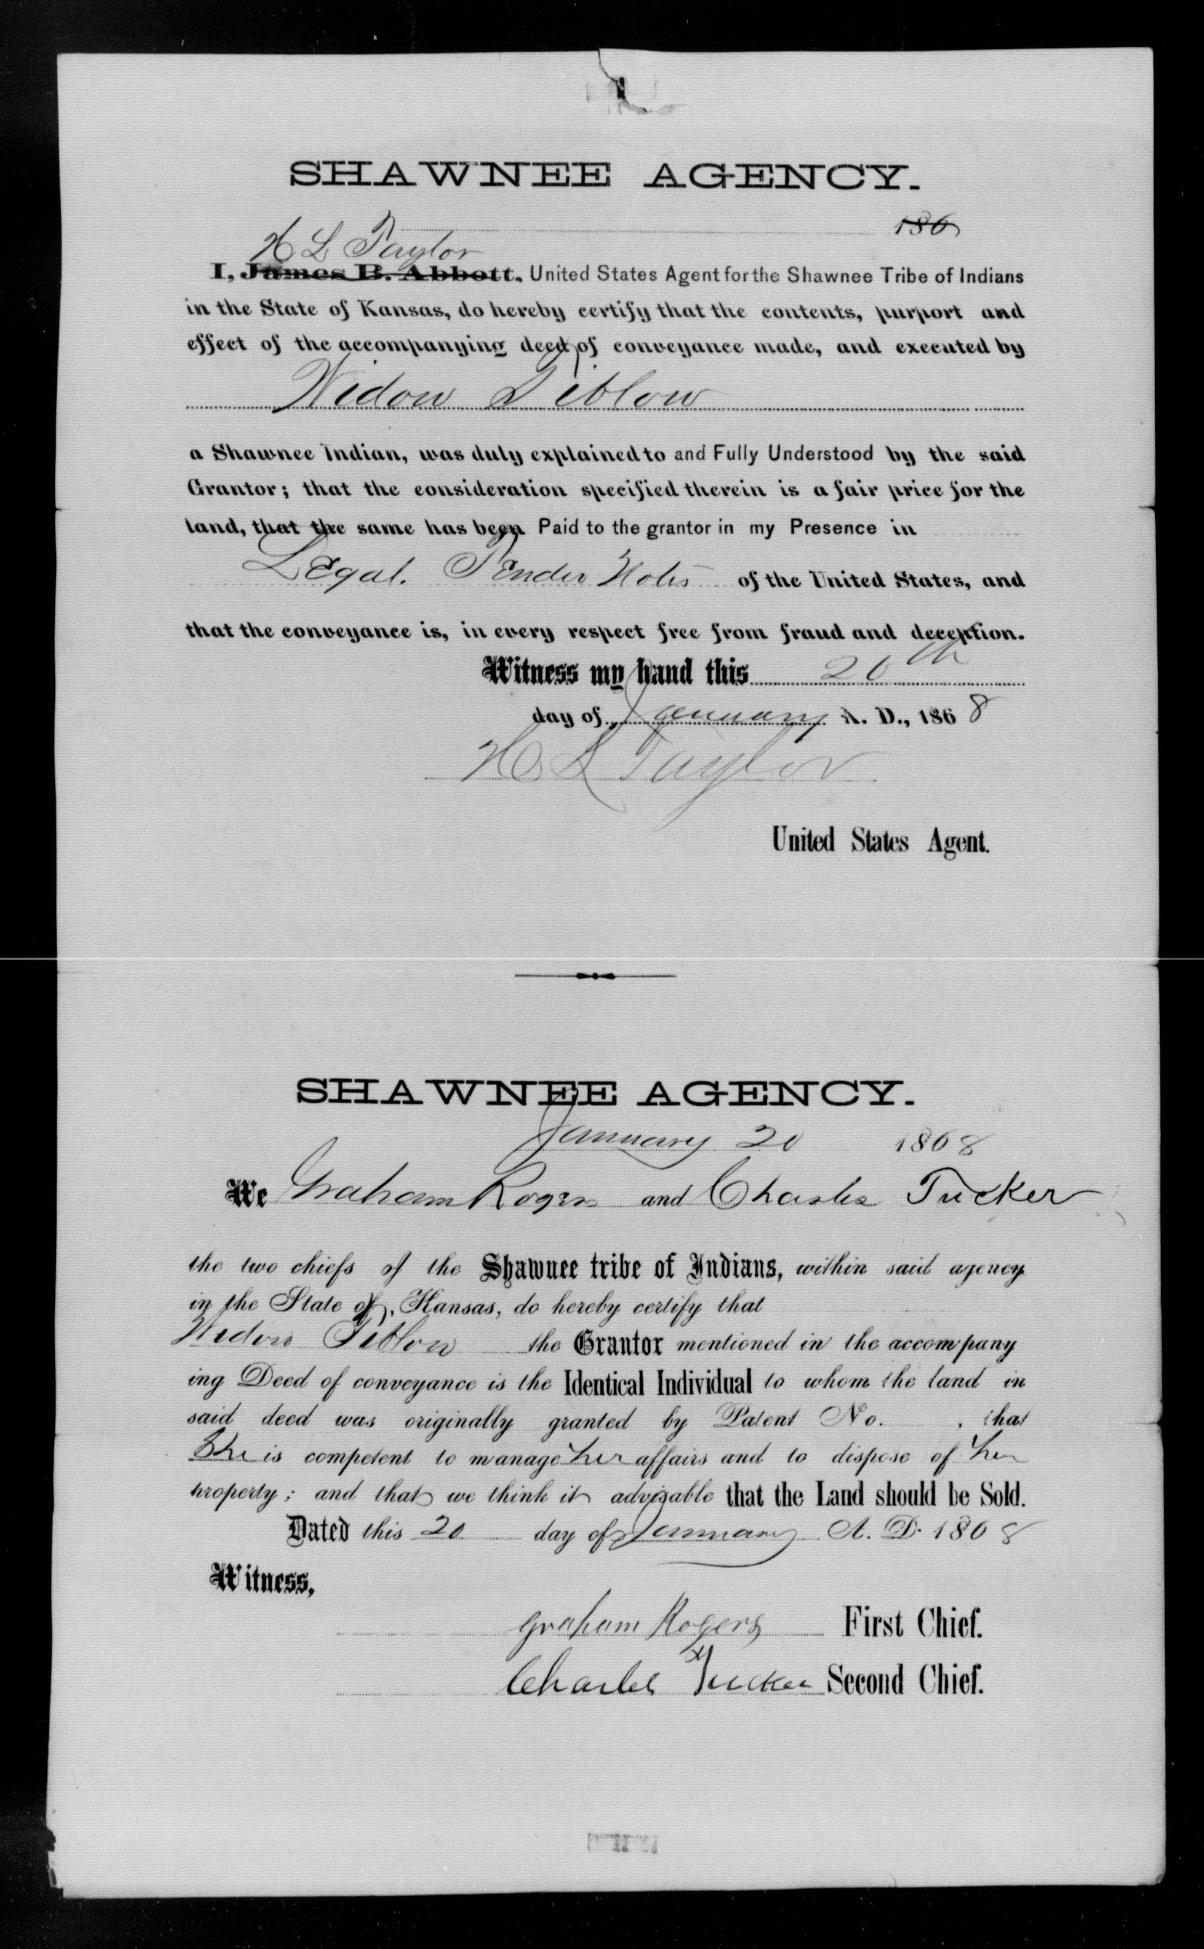 SHAWNEE AGENCY.
186
H L Taylor
I, James B. Abbott, United States Agent for the Shawnee Tribe of Indians
in the State of Kansas, do hereby certify that the contents, purport and
effect of the accompanying deed of conveyance made, and executed by
Widow Tiblow
a Shawnee Indian, was duly explained to and Fully Understood by the said
Grantor; that the consideration specified therein is a fair price for the
land, that the same has been Paid to the grantor in my Presence in
Legal Tender Notes of the United States, and
that the conveyance is, in every respect free from fraud and deception.
Witness my hand this 20th
day of January A. D., 1868
H L Taylor
United States Agent.
SHAWNEE AGENCY.
January 20 1868
We Graham Rogers and Charles Tucker
the two chiefs of the Shawnee tribe of Indians, within said agency
in the State of, Kansas, do hereby certify that
Widow Tiblow the Grantor mentioned in the accompany
ing Deed of conveyance is the Identical Individual to whom the land in
said deed was originally granted by Patent No. , that
She is competent to manage her affairs and to dispose of her
property; and that we think it advisable that the Land should be Sold.
Dated this 20 day of January A. D. 1868
Witness,
Graham Rogers First Chief.
Charles Tucker Second Chief.